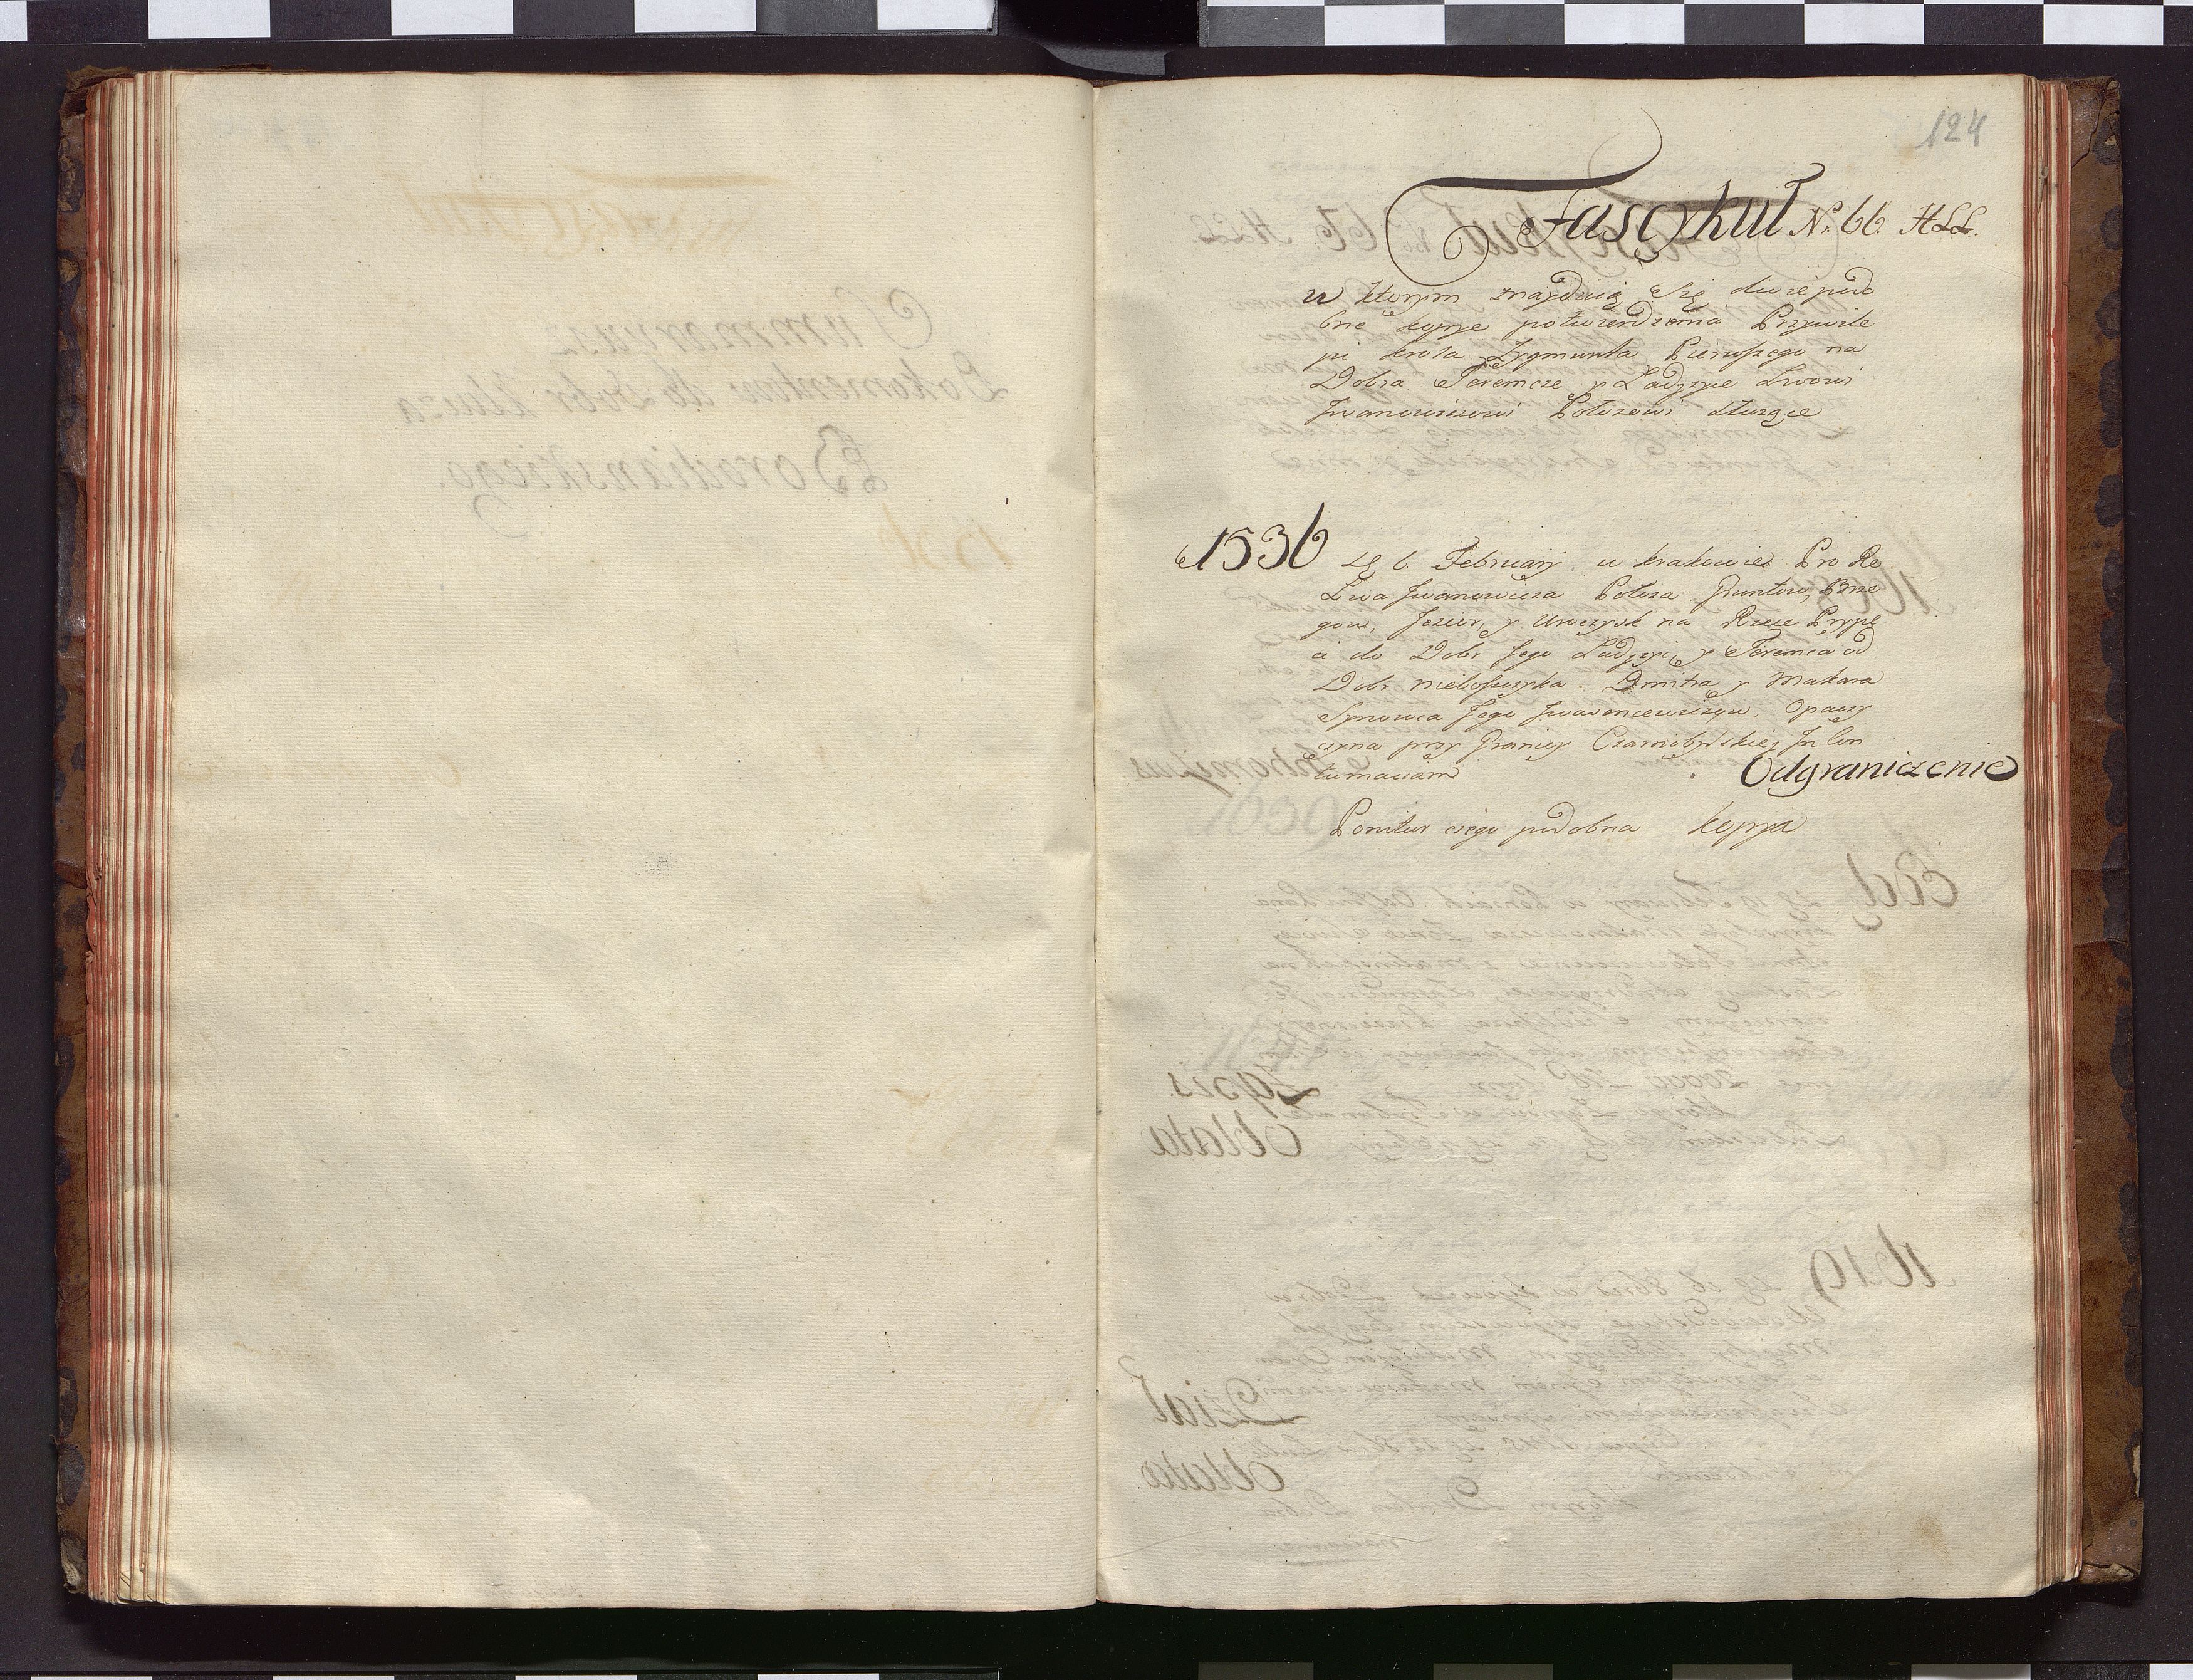 124
Fascykuł Nr. 66. HLL.
w ktorym znayduią się dwie podo
bne kopye potwierdzenia Przywile
iu krola Zygmunta Pierwszego na
Dobra Teremcze y Ladyzycze Lwowi
Jwanowiczowi Połozowi służące
1536 Dg 6. February w krakowie Pro Re
Lwa Jwanowicza Połoza Gruntow, Brze
gow, Jezior, y Uroczysk na Rzece Prype
ci do Dobr Jego Ladyzycz y Teremca od
Dobr nieboszczyka Dmitra y Makara
Synowca Jego Jwaszencewiczow, Opaczy
czyna przy Granicy Czarnobylskiey In Con
tumaciam Odgraniczenie
Ponitur czego podobna kopya